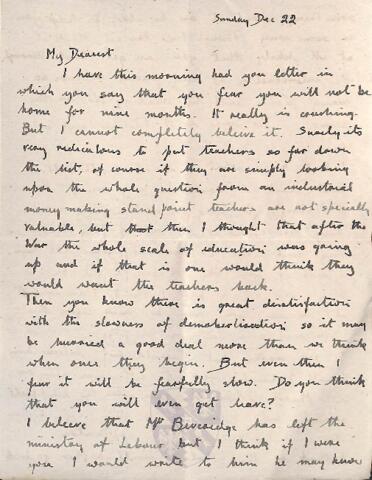 Sunday Dec 22
My Dearest
I have this morning had you letter in
which you say that you fear you will not be
home for nine months. It really is crushing.
But I cannot completely beleive it. Surely its
very rediculous to put teachers so far down
the list, of course if they are simply looking
upon the whole question from an industrial
money making stand point teachers are not specially
valuable, but then I thought that after the
War the whole scale of education was going
up and if that is one would think they
would want the teachers back.
Then you know there is great disatisfaction
with the slowness of demobilisation so it may
be hurried a good deal more than we think
when once they begin. But even then I
fear it will be fearfully slow. Do you think
that you will even get leave?
I beleeve that Mr Beveridge has left the
ministry of Labour but I think if I were
you I would write to him he may know